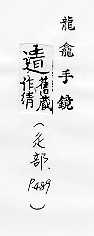 龍龕手鏡
舊藏
作
(辵部. P.489)